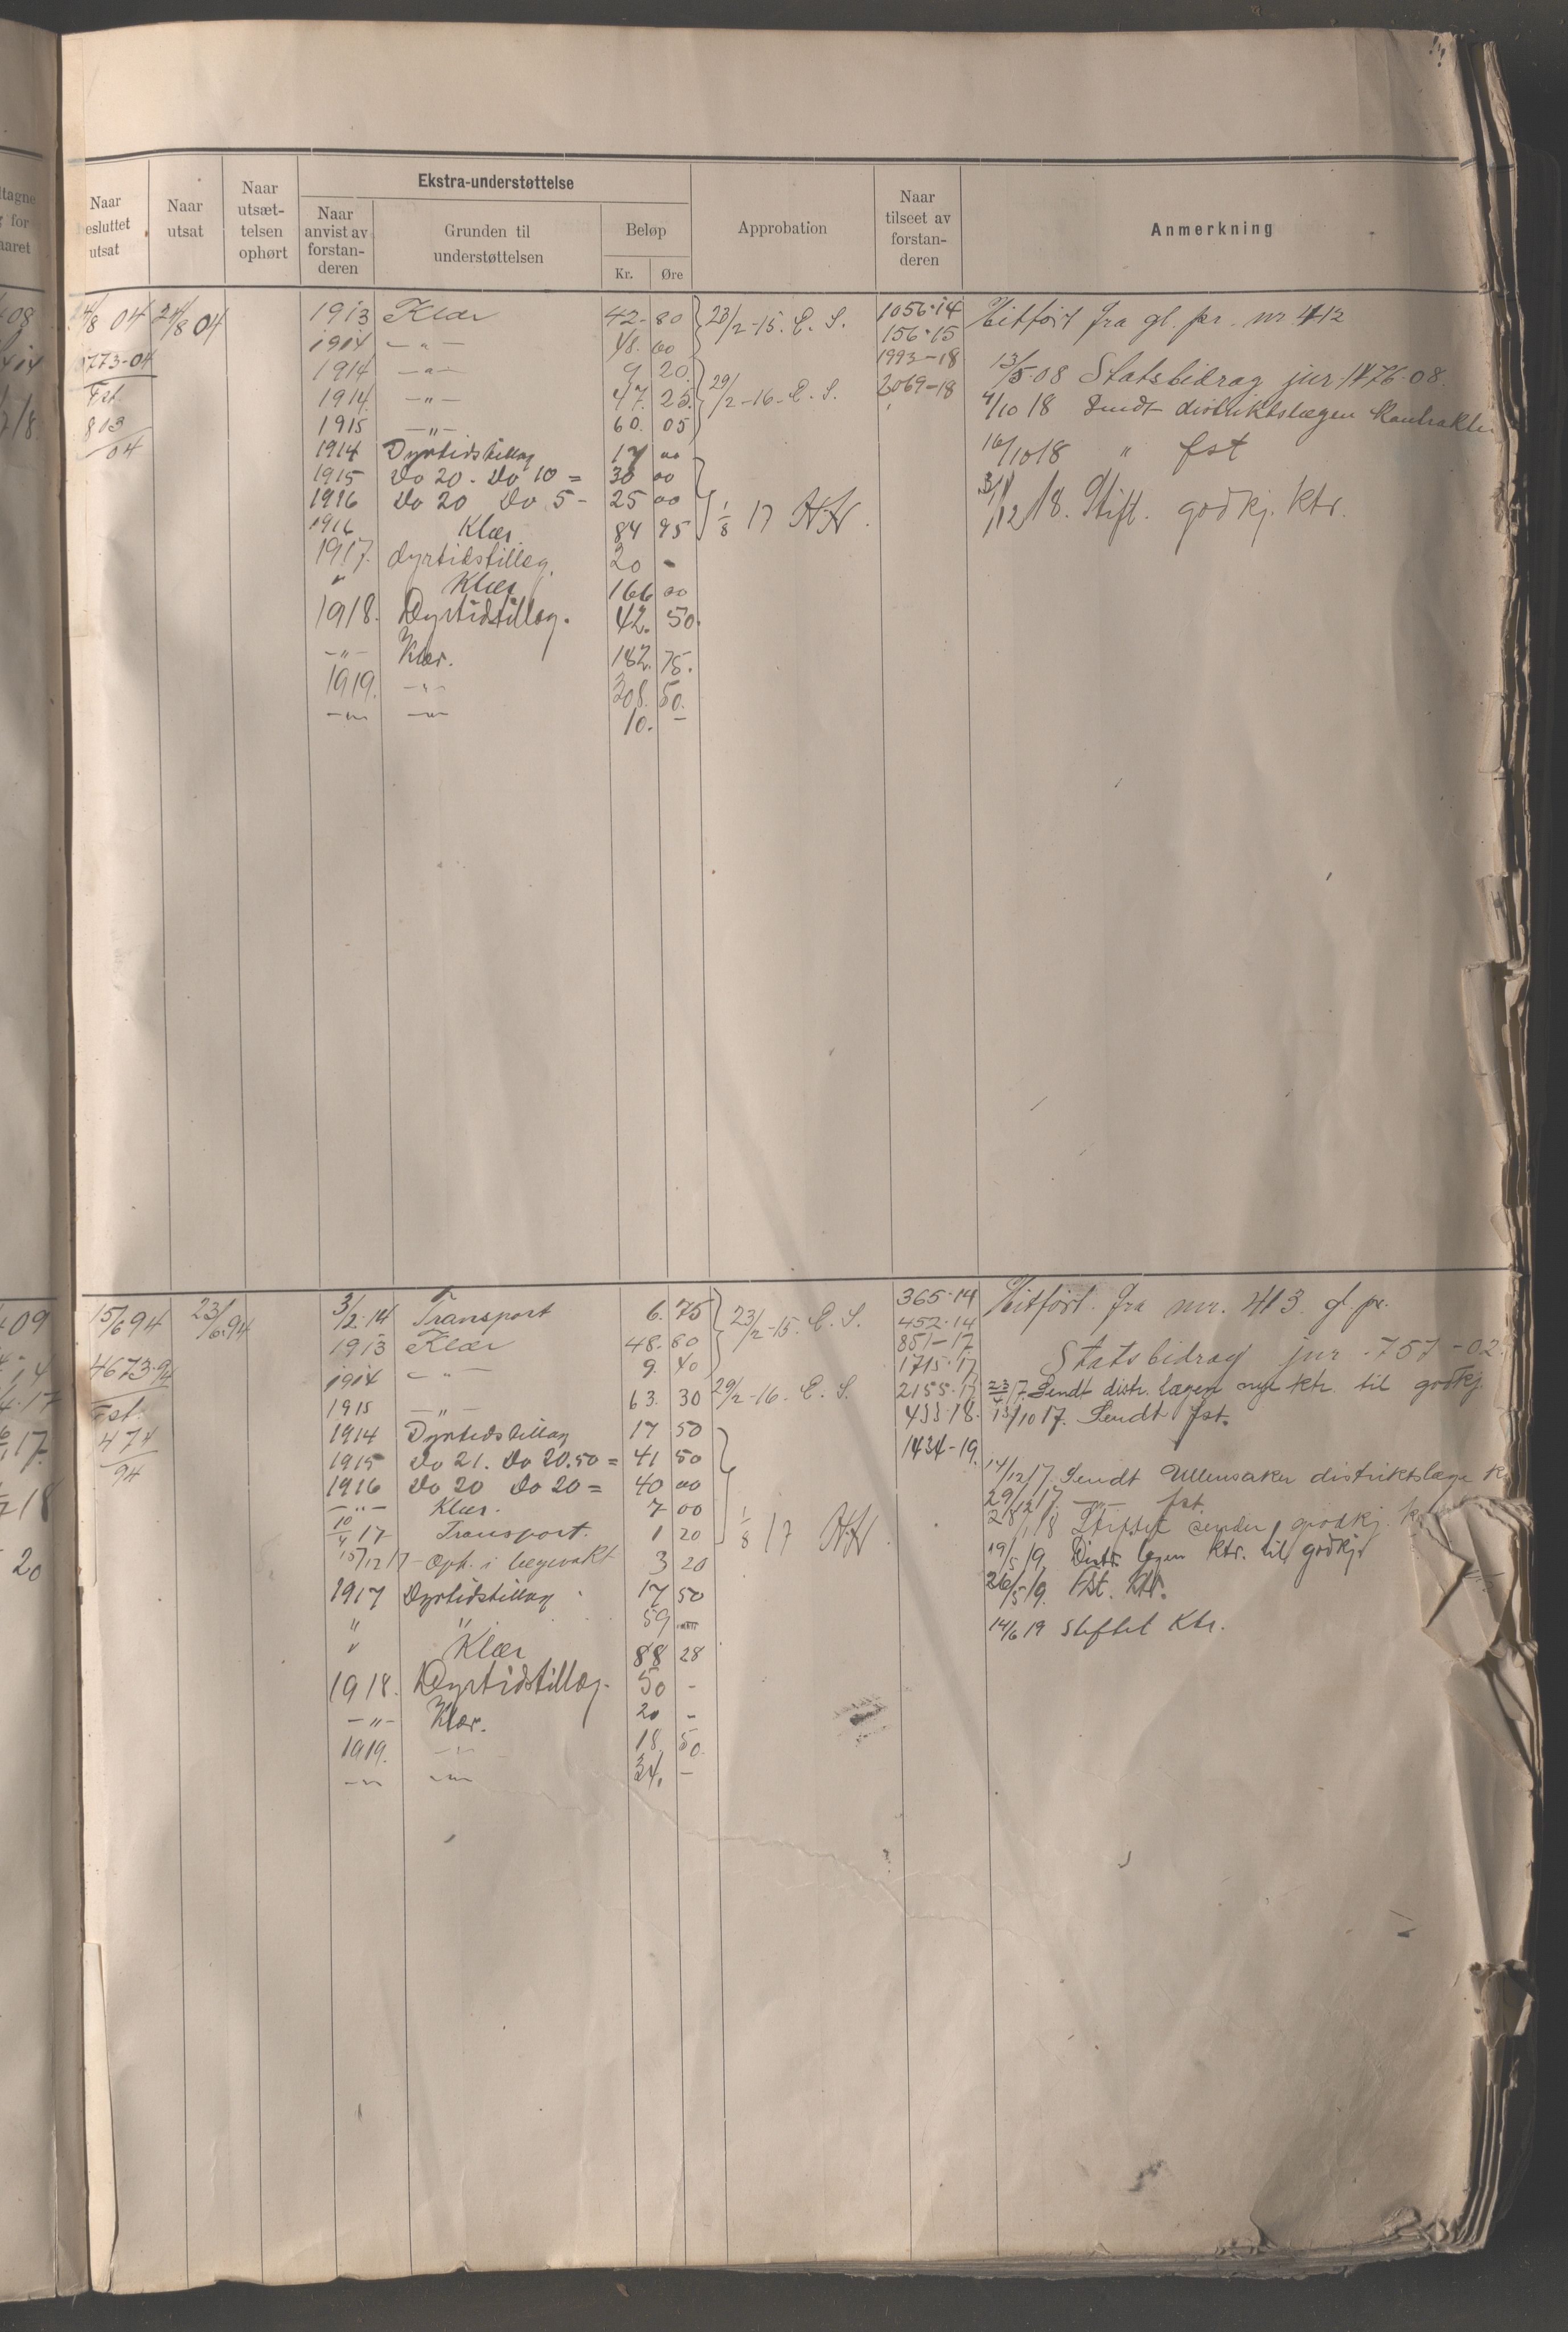 Naar besluttet utsat
Naar utsat
Naar utsæt-telsen ophørt
Ekstra-understøttelse
Naar anvist av forstan-deren
Grunden til understøttelsen
Beløp
Kr.
Øre
Approbation
Naar tilseet av forstan-deren
Anmerkning
/8 04 24/8 04
1773-04
Fst.
803
04
1913 Klær 42-80
1914 —„— 48.00
1914 —„— 9 20
1914 —„— 47. 25
1915 —„— 60. 05
1914 Dyrtidstillæg 17 00
1915 Do 20 - Do 10 = 30 00
1916 Do 20 Do 5 - 25 00
1916 Klær. 84 95
1917. dyrtidstillæg. 20 -
" Klær 166 00
1918. Dyrtidstillæg. 42. 50.
—„— Klær. 182. 75.
1919. —„— 308. 50.
—„— —„— 10. -
23/2-15. E. S.
29/2-16. E. S.
1/8 17
1056-14
156-15
1993-18
2069-18
Hitført fra gl. pr. nr. 412
13/5-08 Statsbidrag jnr. 1476-08.
4/10 18 Sendt distriktslægen kontrakten
16/10 18 " fst
/12 18. Stift. godkj. Ktr.
15/6 94 23/6.94
4673-94
Fst.
474
94
3/2.14 Transport 6. 75
1913 Klær 48. 80
1914 —„— 9. 40
1915 —„— 63. 30
1914 Dyrtidstillæg 17 50
1915 Do 21. Do 20.50 = 41 50
1916 Do 20 Do 20 = 40 00
—„— Klær. 7 00
10/4 17 Transport. 1 20
15/12 17 - Oph. i legevakt 3 20
1917 Dyrtidstillæg 17 50
" " 59 —
" Klær 88 28
1918. Dyrtidstillæg. 50 -
—„— Klær. 20 -
1919. —„— 18. 50.
—„— —„— 34. -
23/2-15. E. S.
29/2-16. E. S.
1/8 17
365-14
452-14
851-17
1715-17
2155-17
433-18.
1434-19.
Hitført fra nr. 413. gl. pr.
Statsbidrag jnr. 757-02.
/7 Sendt distr. lægen nye ktr. til godkj.
13/10 17. Sendt fst.
14/12 17. Sendt Ullensaker distriktslæge
29/12 17. —„— fst.
28/1 18 Stiftet sender godkj.
19/5 19. Distr. lægen Ktr. til godkj.
26/5 19. Fst. Ktr.
14/6 19 stiftet Ktr.